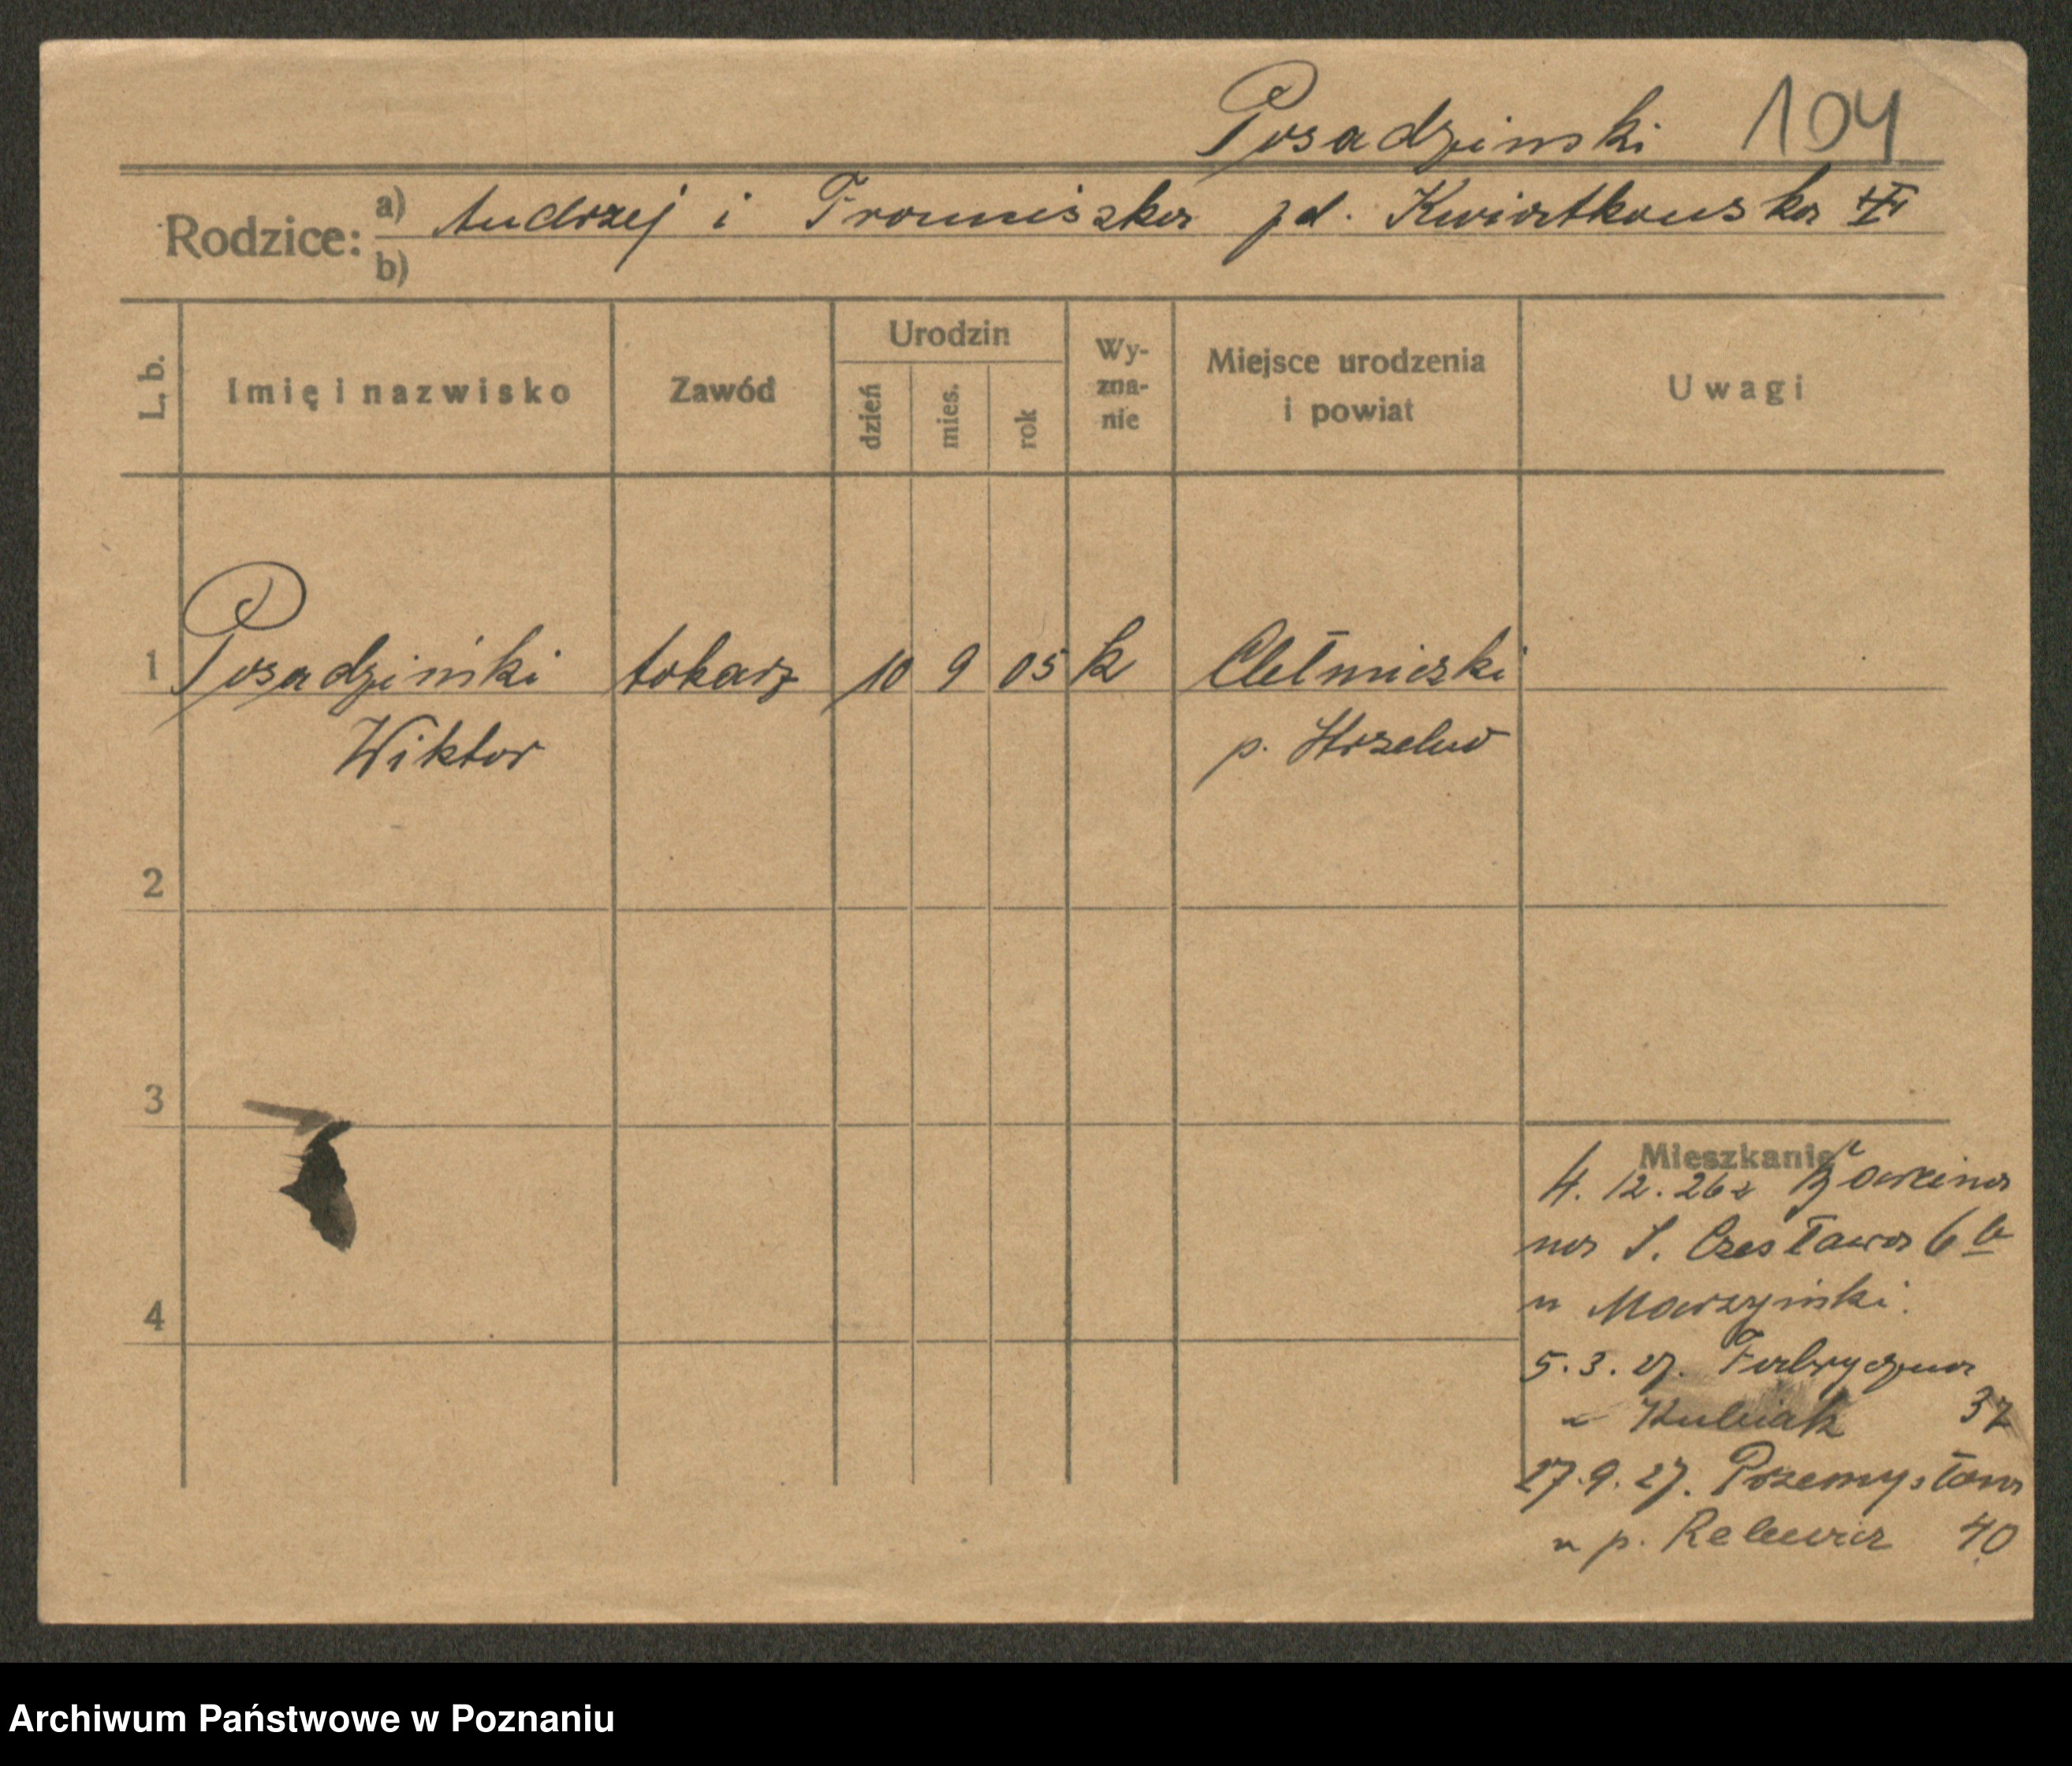 Posadzinski 104
Rodzice: a) Andrzej i Franciszka zd. Kwiatkowska
b)
L. b.
Imię i nazwisko
Zawód
Urodzin
dzień
mies.
rok
Wy-
zna-
nie
Miejsce urodzenia
i powiat
Uwagi
1 Posadziński tokarz 10 9 05 k Chełmiczki
Wiktor p. Strzelno
2
3
4
Mieszkanie
4. 12. 26 z
na S. Czesława 6
u Marzyński.
5. 3. 27. Fabryczna
u Kubiak 37
27. 9. 27. Przemysłowa
u p. 40
Archiwum Państwowe w Poznaniu